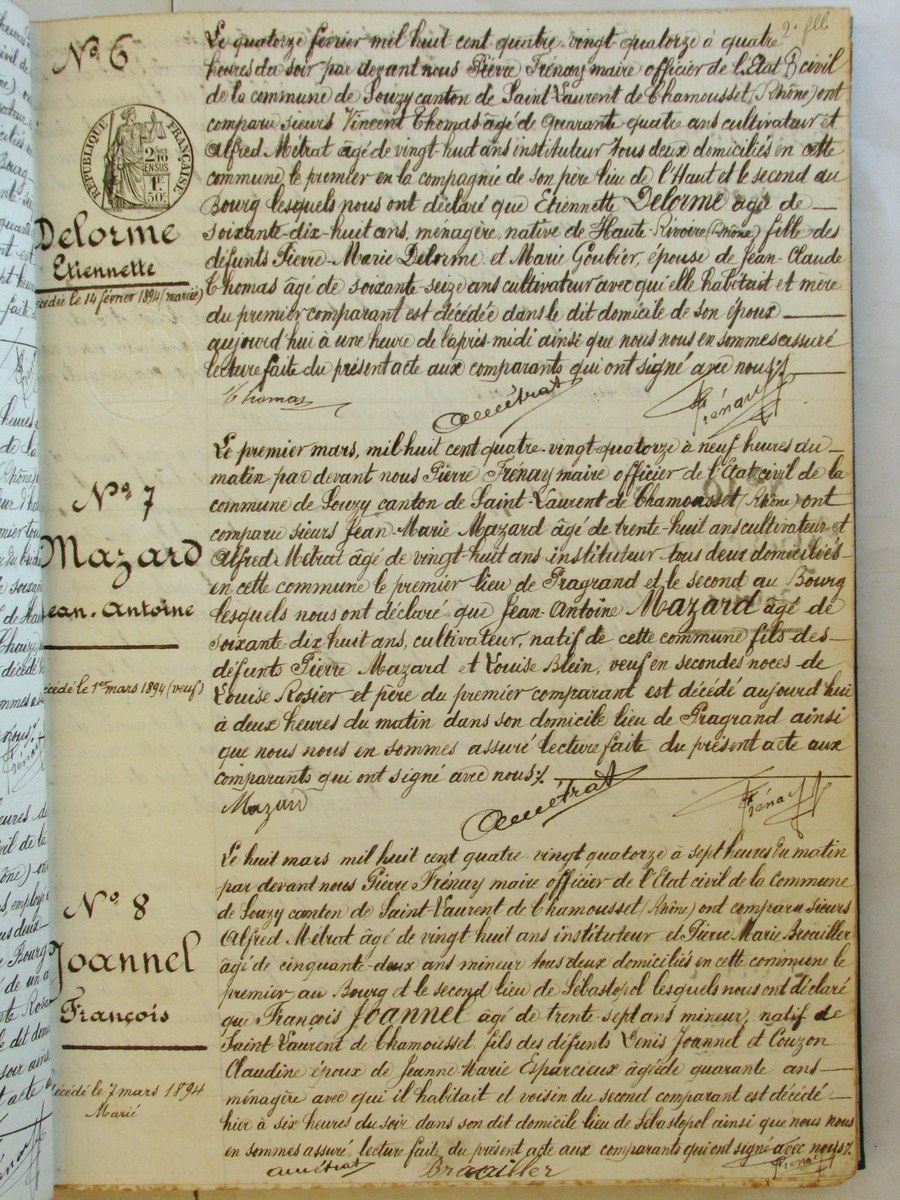 2e fllt
No 6
RÉPUBLIQUE FRANÇAISE
2/10
EN SUS
1F
50c
Delorme
Etiennette
décédée le 14 février 1894 (mariée)
Le quatorze février mil huit cent quatre-vingt quatorze à quatre
heures du soir par devant nous Pierre Frénay maire officier de l'Etat civil
de la commune de Souzy canton de Saint-Laurent de Chamousset (Rhône) ont
comparu sieurs Vincent Thomas âgé de quarante quatre ans cultivateur et
Alfred Métrat âgé de vingt huit ans instituteur tous deux domiciliés en cette
commune le premier en la compagnie de son père lieu de l'Haut et le second au
Bourg lesquels nous ont déclaré que Etiennette Delorme âgée de
soixante-dix-huit ans, ménagère, native de Haute-Rivoire (Rhône) fille des
défunts Pierre-Marie Delorme et Marie Goubier, épouse de Jean-Claude
Thomas âgé de soixante-seize ans cultivateur avec qui elle habitait et mère
du premier comparant est décédée dans le dit domicile de son époux
aujourd'hui à une heure de l'après-midi ainsi que nous nous en sommes assuré
lecture faite du présent acte aux comparants qui ont signé avec nous
Thomas
AMétrat
Frénay
No 7
Mazard
Jean-Antoine
décédé le 1er mars 1894 (veuf)
Le premier mars, mil huit cent quatre-vingt-quatorze à neuf heures du
matin par devant nous Pierre Frénay maire officier de l'Etat civil de la
commune de Souzy canton de Saint-Laurent de Chamousset (Rhône) ont
comparu sieurs Jean-Marie Mazard âgé de trente-huit ans cultivateur et
Alfred Métrat âgé de vingt-huit ans instituteur tous deux domiciliés
en cette commune le premier lieu de Pragrand et le second au Bourg
lesquels nous ont déclaré que Jean-Antoine Mazard âgé de
soixante dix huit ans, cultivateur, natif de cette commune fils des
défunts Pierre Mazard et Louise Blein, veuf en secondes noces de
Louise Rosier et père du premier comparant est décédé aujourd'hui
à deux heures du matin dans son domicile lieu de Pragrand ainsi
que nous nous en sommes assuré lecture faite du présent acte aux
comparants qui ont signé avec nous
Mazard
AMétrat
Frénay
No 8
Joannel
François
décédé le 7 mars 1894
Marié
Le huit mars mil huit cent quatre-vingt quatorze à sept heures du matin
par devant nous Pierre Frénay maire officier de l'Etat civil de la commune
de Souzy canton de Saint-Laurent de Chamousset (Rhône) ont comparu sieurs
Alfred Métrat âgé de vingt huit ans instituteur et Pierre Marie Brocailler
âgé de cinquante-deux ans mineur tous deux domiciliés en cette commune le
premier au Bourg et le second lieu de Sébastopol lesquels nous ont déclaré
que François Joannel âgé de trente sept ans mineur, natif de
Saint Laurent de Chamousset fils des défunts Denis Joannel et Couzon
Claudine époux de Jeanne-Marie Esparcieux âgée de quarante ans
ménagère avec qui il habitait et voisin du second comparant est décédé
hier à six heures du soir dans son dit domicile lieu de Sébastopol ainsi que nous nous
en sommes assuré, lecture faite du présent acte aux comparants qui ont signé avec nous
AMétrat
Brocailler
Frénay